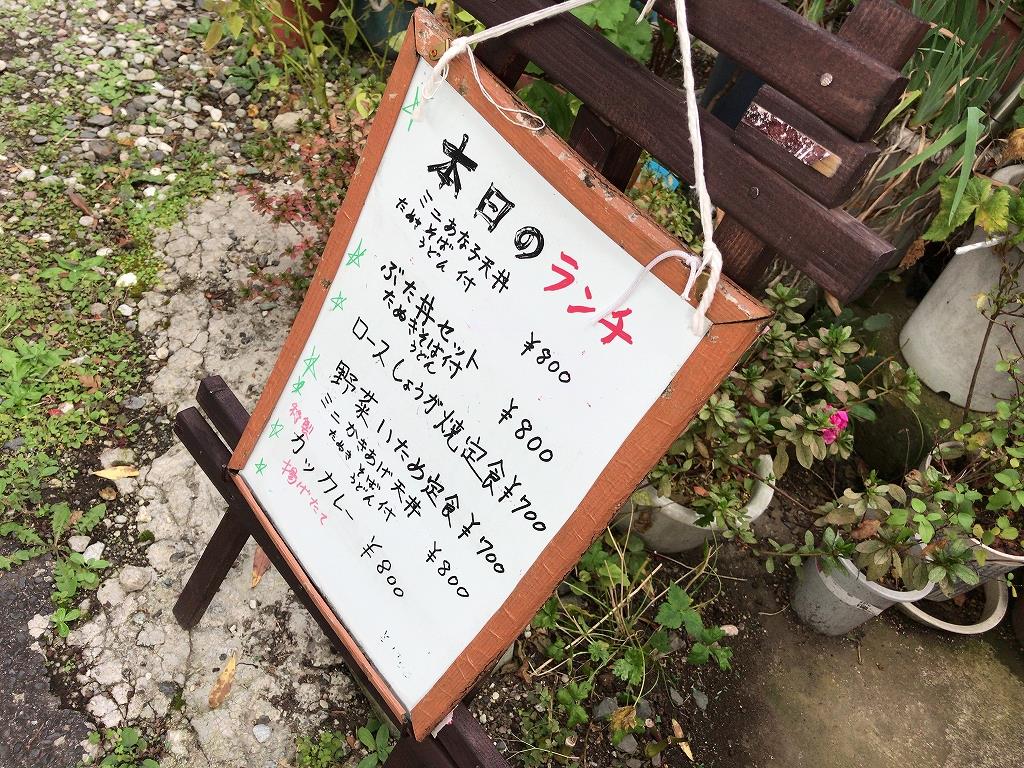 本日のランチ
ミニあな子天丼 ¥800
たぬきそば
うどん 付
ぶた丼セット ¥800
たぬきそば付
うどん
ロースしょうが焼定食 ¥700
野菜いため定食 ¥700
ミニかきあげ天丼 ¥800
たぬきそば付
うどん
特製
カツカレー ¥800
揚げたて